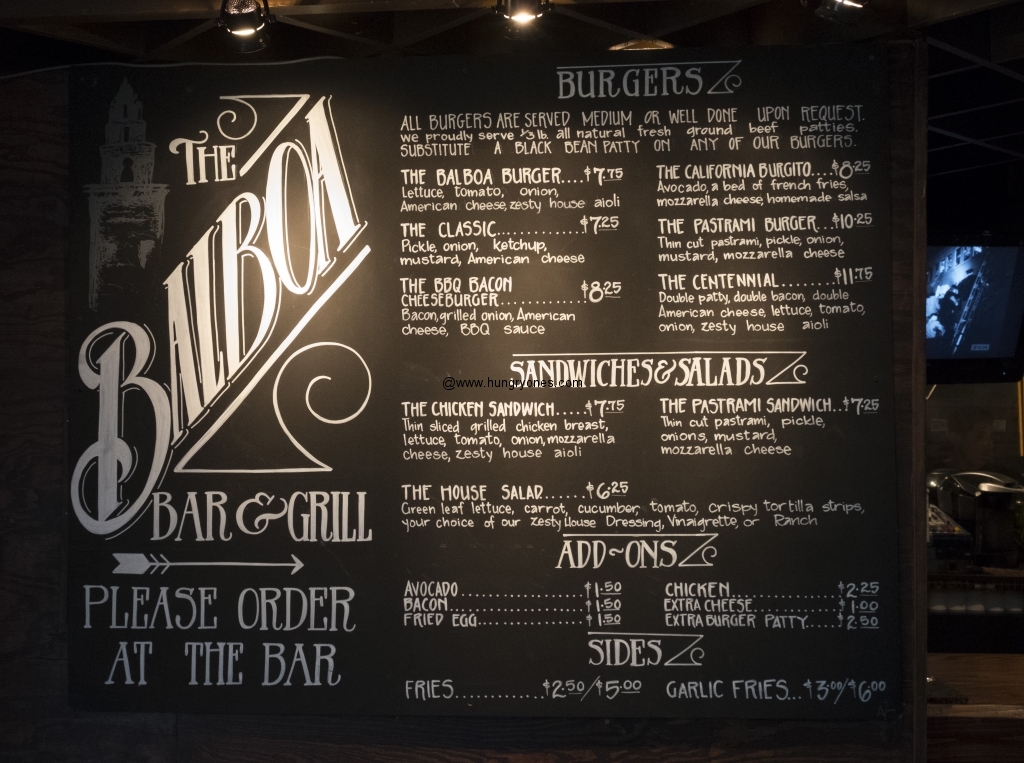 THE
BALBOA
BAR & GRILL
PLEASE ORDER
AT THE BAR
BURGERS
ALL BURGERS ARE SERVED MEDIUM OR WELL DONE UPON REQUEST.
we proudly serve 1/3 lb. all natural fresh ground beef patties.
SUBSTITUTE A BLACK BEAN PATTY ON ANY OF OUR BURGERS.
THE BALBOA BURGER....$7.75
Lettuce, tomato, onion,
American cheese, zesty house aioli
THE CLASSIC............$7.25
Pickle, onion, ketchup,
mustard, American cheese
THE BBQ BACON
CHEESEBURGER...........$8.25
Bacon, grilled onion, American
cheese, BBQ sauce
THE CALIFORNIA BURGITO....$8.25
Avocado, a bed of french fries,
mozzarella cheese, homemade salsa
THE PASTRAMI BURGER...$10.25
Thin cut pastrami, pickle, onion,
mustard, mozzarella cheese
THE CENTENNIAL........$11.75
Double patty, double bacon, double
American cheese, lettuce, tomato,
onion, zesty house aioli
SANDWICHES & SALADS
@www.hungryones.com
THE CHICKEN SANDWICH.....$7.75
Thin sliced grilled chicken breast,
lettuce, tomato, onion, mozzarella
cheese, zesty house aioli
THE PASTRAMI SANDWICH..$7.25
Thin cut pastrami, pickle,
onions, mustard,
mozzarella cheese
THE HOUSE SALAD......$6.25
Green leaf lettuce, carrot, cucumber, tomato, crispy tortilla strips,
your choice of our Zesty House Dressing, Vinaigrette, or Ranch
ADD~ONS
AVOCADO..................$1.50
BACON....................$1.50
FRIED EGG................$1.50
CHICKEN................$2.25
EXTRA CHEESE............$1.00
EXTRA BURGER PATTY.....$2.50
SIDES
FRIES............$2.50/$5.00
GARLIC FRIES...$3.00/$6.00